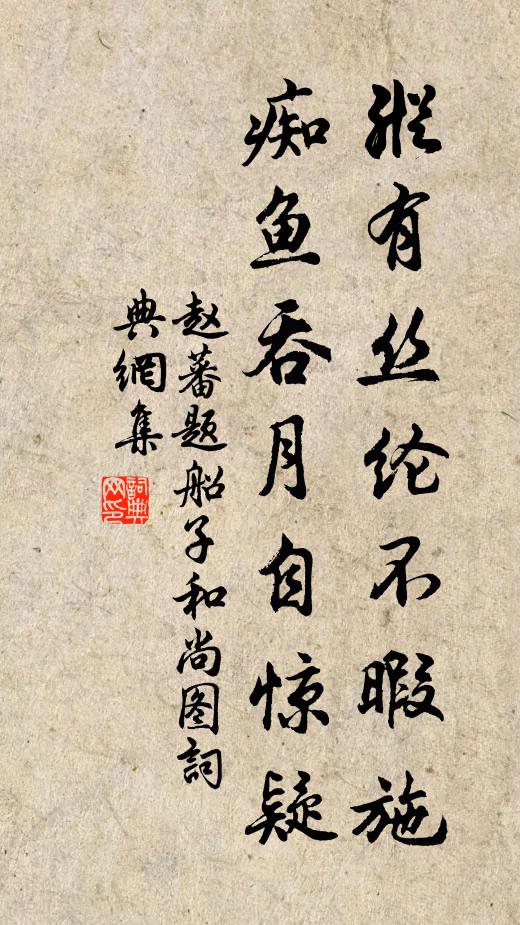 縱有丝纶不暇施
痴鱼吞月自惊疑
赵蕃题船子和尚图詞
典網集
詞典
网印